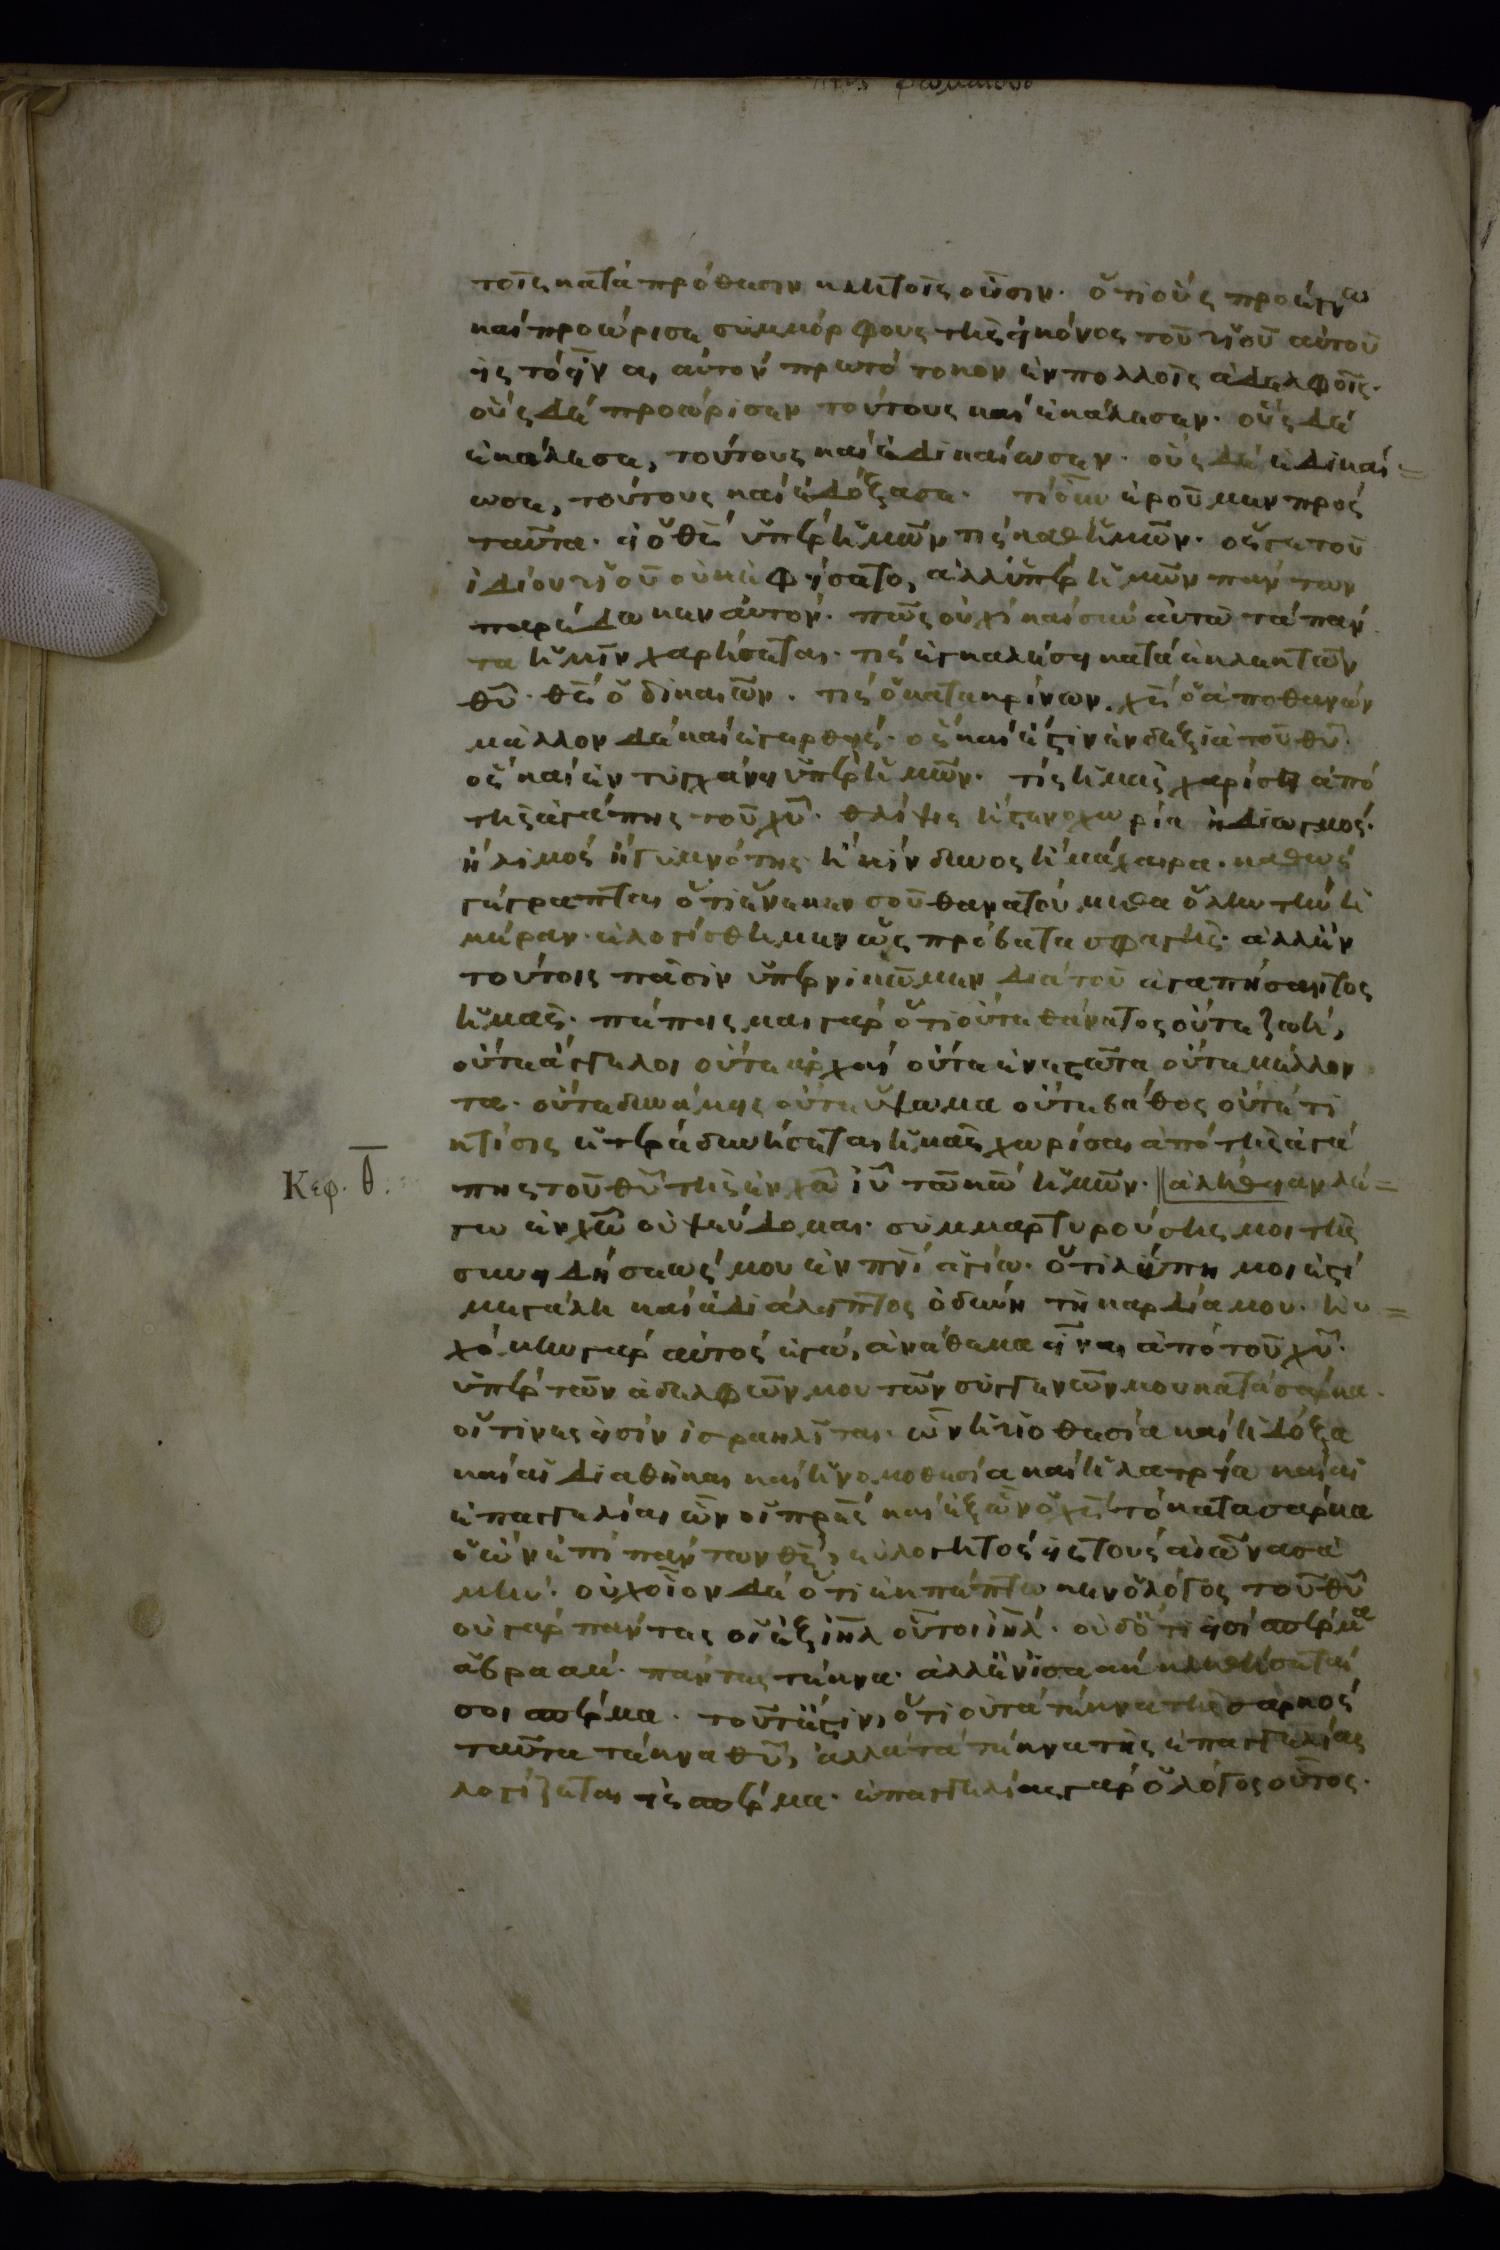 τοῖς κατὰ πρόθεσιν κλητοῖς οὖσιν· ὅτι οὓς προέγνω
καὶ προώρισε συμμόρφους τῆς εἰκόνος τοῦ υἱοῦ αὐτοῦ
εἰς τὸ εἶναι αὐτὸν πρωτότοκον ἐν πολλοῖς ἀδελφοῖς·
οὓς δὲ προώρισεν τούτους καὶ ἐκάλεσεν· οὓς δὲ
ἐκάλεσε, τούτους καὶ ἐδικαίωσεν· οὓς δὲ ἐδικαί=
ωσε, τούτους καὶ ἐδόξασε· τί οὖν ἐροῦμεν πρὸς
ταῦτα· εἰ ὁ θς ὑπὲρ ἡμῶν τίς καθ ἡμῶν· ὅς γε τοῦ
ἰδίου υἱοῦ οὐκ ἐφείσατο, ἀλλ ὑπὲρ ἡμῶν πάντων
παρέδωκεν αὐτόν· πῶς οὐχὶ καὶ σὺν αὐτῶ τὰ πάν
τα ἡμῖν χαρίσεται· τίς ἐγκαλέσει κατὰ ἐκλεκτῶν
θυ· θς ὁ δικαιῶν· τίς ὁ κατακρίνων· χς ὁ ἀποθανὼν
μάλλον δὲ καὶ ἐγερθείς· ὃς καὶ ἔστιν ἐν δεξιᾶ τοῦ θυ·
ὃς καὶ ἐντυγχάνει ὑπὲρ ἡμῶν· τίς ἡμᾶς χωρίσει ἀπὸ
τῆς ἀγάπης τοῦ χυ· θλίψις ἢ στενοχωρία ἢ διωγμός·
ἢ λιμὸς ἢ γυμνότης ἢ κίνδυνος ἢ μάχαιρα· καθὼς
γέγραπται ὅτι ἕνεκεν σοῦ θανατούμεθα ὅλην τὴν ἡ
μέραν· ἐλογίσθημεν ὡς πρόβατα σφαγῆς· ἀλλ ἐν
τούτοις πᾶσιν ὑπερνικῶμεν διὰ τοῦ ἀγαπήσαντος
ἡμᾶς· πέπεισμαι γὰρ ὅτι οὔτε θάνατος οὔτε ζωή,
οὔτε ἄγγελοι οὔτε ἀρχαὶ οὔτε ἐνεστῶτα οὔτε μέλλον
τα· οὔτε δυνάμεις οὔτε ὕψωμα οὔτε βάθος οὔτε τι
κτίσις ἑτέρα δυνήσεται ἡμᾶς χωρίσαι ἀπὸ τῆς ἀγά
Κεφ. θ. πης τοῦ θυ τῆς ἐν χω ιυ τῶ κω ἡμῶν· ἀλήθειαν λέ=
γω ἐν χω οὐ ψεύδομαι· συμμαρτυρούσης μοι τῆς
συνειδήσεώς μου ἐν πνι ἁγίω· ὅτι λύπη μοι ἐστὶ
μεγάλη καὶ ἀδιάλειπτος ὀδύνη τῆ καρδία μου· ηυ=
χόμην γὰρ αὐτὸς ἐγὼ, ἀνάθεμα εἶναι ἀπὸ τοῦ χυ·
ὑπὲρ τῶν ἀδελφῶν μου τῶν συγγενῶν μου κατὰ σάρκα·
οἵτινες εἰσὶν ἰσραηλῖται· ὧν ἡ υἱοθεσία καὶ ἡ δόξα
καὶ αἱ διαθῆκαι καὶ ἡ νομοθεσία καὶ ἡ λατρεία καὶ αἱ
ἐπαγγελίαι ὧν οἱ πρες καὶ ἐξ ὧν ὁ χς τὸ κατὰ σάρκα
ὁ ὢν ἐπὶ πάντων θς, εὐλογητὸς εἰς τοὺς αἰῶνας ἀ
μήν· οὐχ οἷον δὲ ὅτι ἐκπέπτωκεν ὁ λόγος τοῦ θυ
οὐ γὰρ πάντες οἱ ἐξ ιηλ οὗτοι ιηλ· οὐδ ὅτι εἰσὶ σπέρμα
ἀβραάμ· πάντες τέκνα· ἀλλ ἐν ἰσαὰκ κληθήσεταί
σοι σπέρμα· τοῦτ ἔστιν, ὅτι οὐ τὰ τέκνα τῆς σαρκὸς
ταῦτα τέκνα θυ, ἀλλὰ τὰ τέκνα τῆς ἐπαγγελίας
λογίζεται εἰς σπέρμα· ἐπαγγελίας γὰρ ὁ λόγος οὗτος·